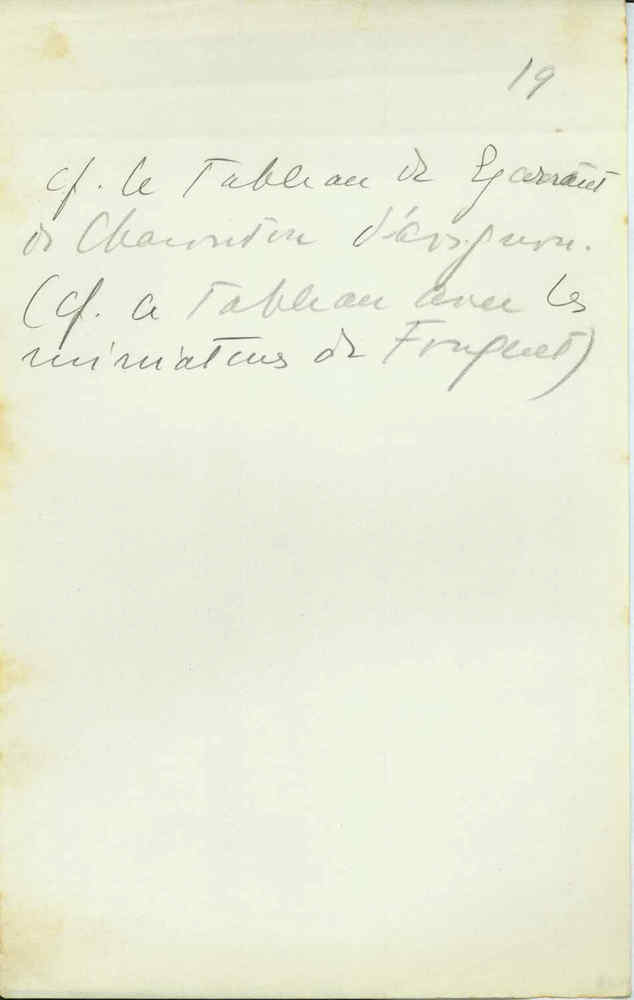 19
cf. le Tableau de
de Charonton d'Avignon.
(cf. ce Tableau avec les
miniatures de Fouquet)